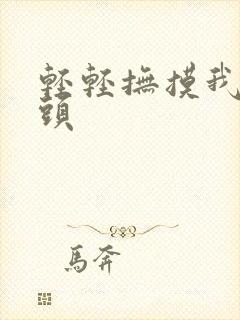 輕輕撫摸我
頭
馬奔